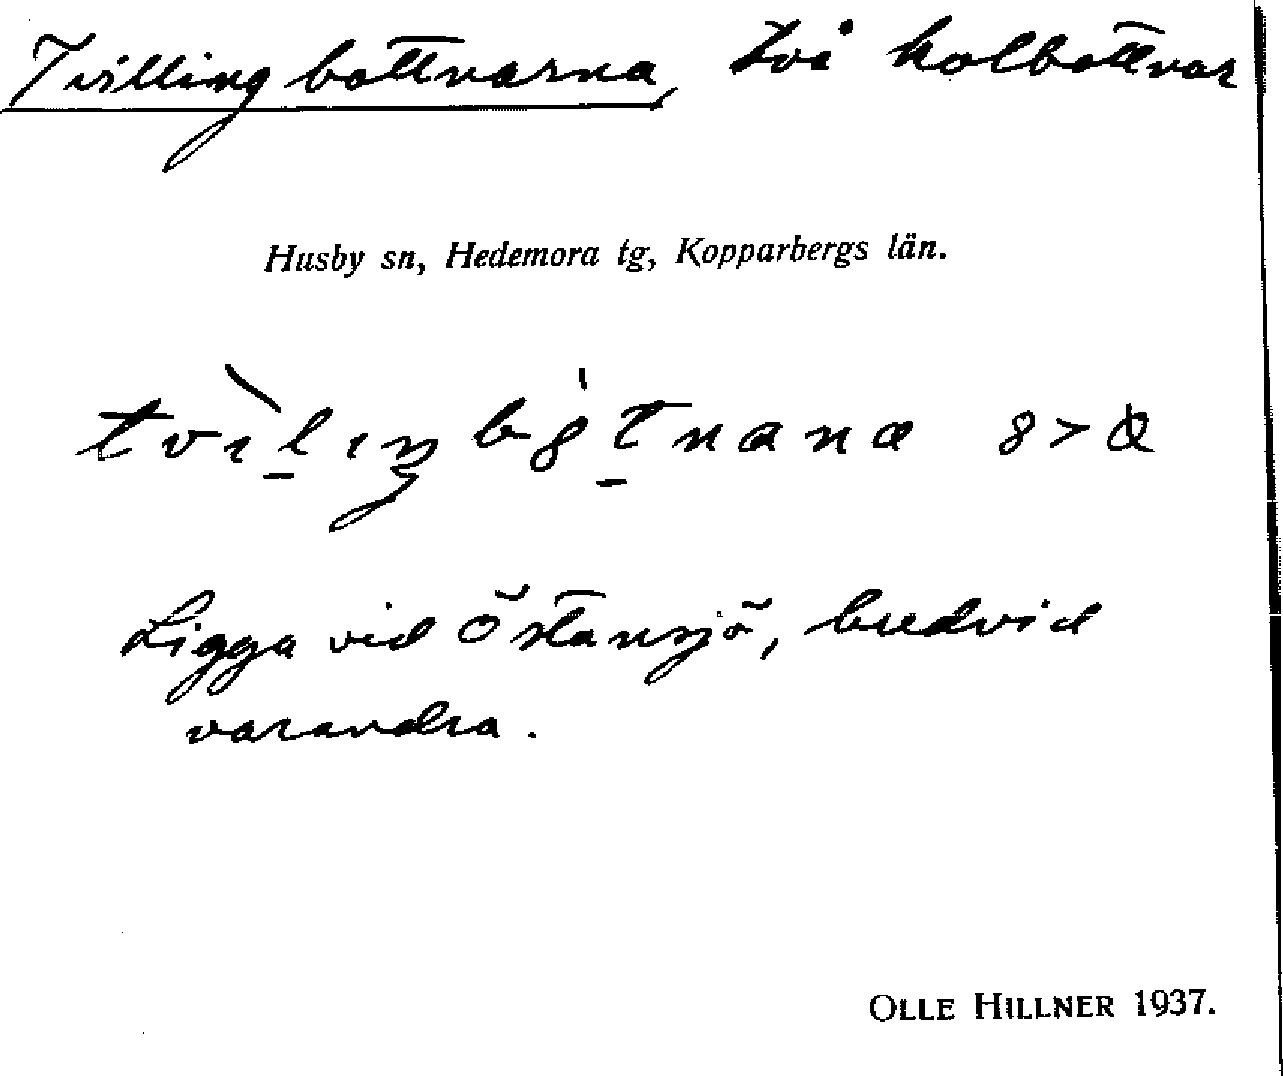 Tvillingbottnarna, två kolbottnar
Husby sn, Hedemora tg, Kopparbergs län.
Ligga vid Östansjö, bredvid
varandra.
OLLE HILLNER 1937.